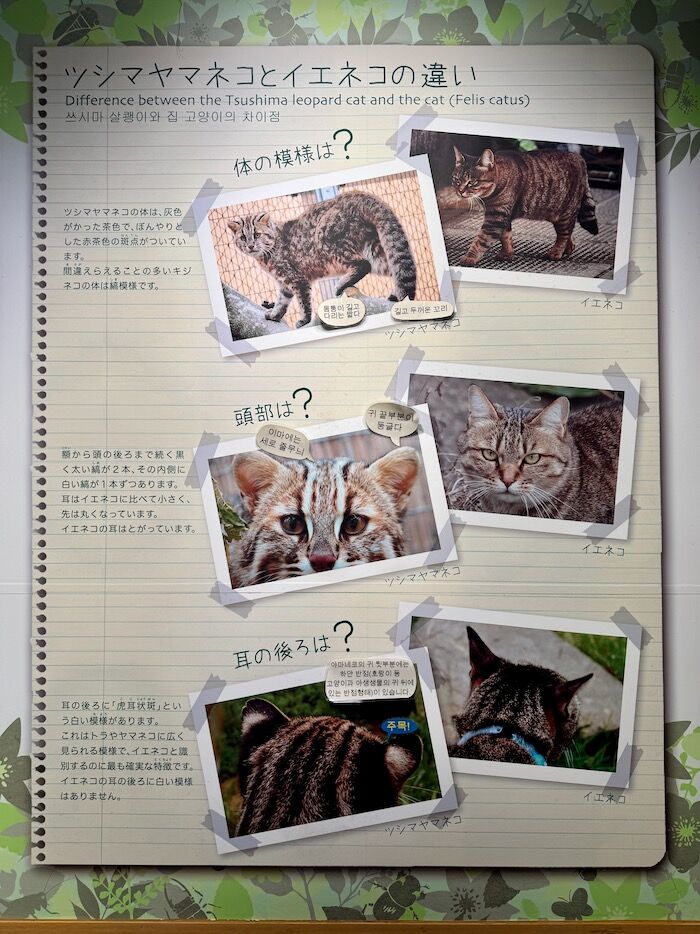 ツシマヤマネコとイエネコの違い
Difference between the Tsushima leopard cat and the cat (Felis catus)
쓰시마 살쾡이와 집 고양이의 차이점
体の模様は?
ツシマヤマネコの体は、灰色
がかった茶色で、ぼんやりと
した赤茶色の斑点がついてい
ます。
間違えらえることの多いキジ
ネコの体は縞模様です。
몸통이 길고
다리는 짧다
길고 두꺼운 꼬리
ツシマヤマネコ
イエネコ
頭部は?
額から頭の後ろまで続く黒
く太い縞が2本、その内側に
白い縞が1本ずつあります。
耳はイエネコに比べて小さく、
先は丸くなっています。
イエネコの耳はとがっています。
이마에는
세로 줄무늬
귀 끝부분이
둥글다
ツシマヤマネコ
イエネコ
耳の後ろは?
耳の後ろに「虎耳状斑」とい
う白い模様があります。
これはトラやヤマネコに広く
見られる模様で、イエネコと識
別するのに最も確実な特徴です。
イエネコの耳の後ろに白い模様
はありません。
야마네코의 귀 뒷부분에는
하얀 반점(호랑이 등
고양이과 야생생물의 귀 뒤에
있는 반점형태)이 있습니다.
주목!
ツシマヤマネコ
イエネコ